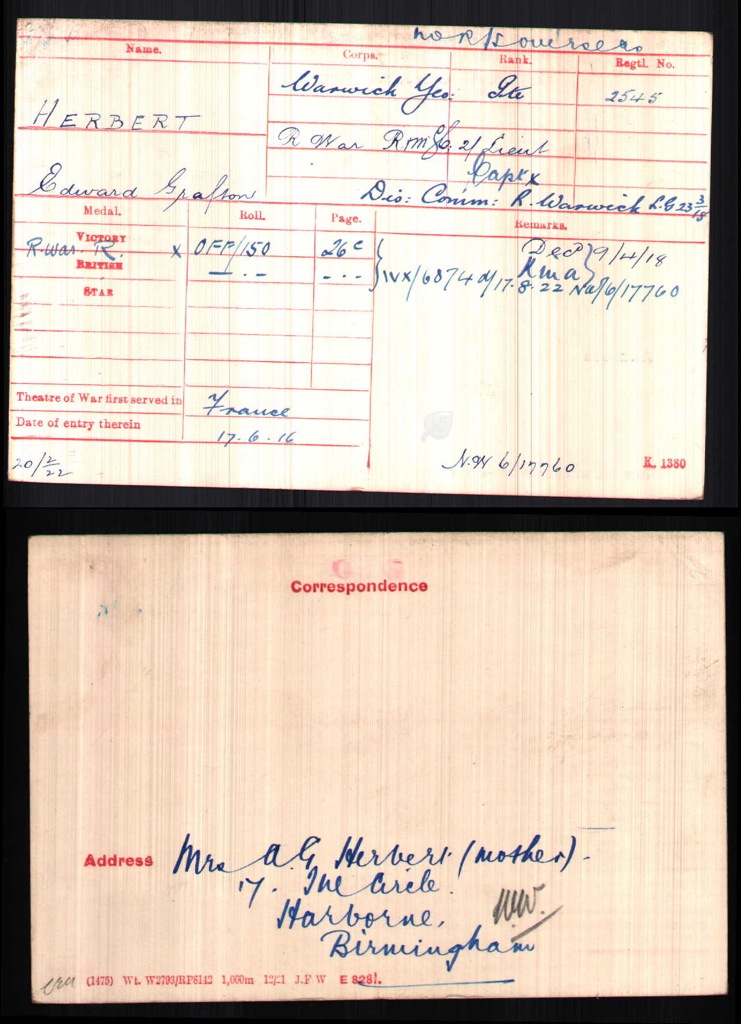 not/s overseas
Name. Corps. Rank. Regtl. No.
Warwick Yeo: Pte 2545
HERBERT
R War R 2/Lieut
Captx
Edward Grafton
Dis: Comm: R. Warwick L.G 23 3/18
Medal. Roll. Page. Remarks.
VICTORY
R. War. R. x OFF/150 26c Decd } 9/4/18
BRITISH — . - - - - Kina
IVX/6874 d/17.8.22 NW/6/17760
STAR
Theatre of War first served in France
Date of entry therein 17.6.16
20/2/22 N.W 6/17760 K. 1380
Correspondence
Address Mrs A.G Herbert (mother).
17. The Circle.
Harborne,
Birmingham
W.W.
(1475) Wt. W2793/RP8142 1,000m 12/21 J.F W E 8281.